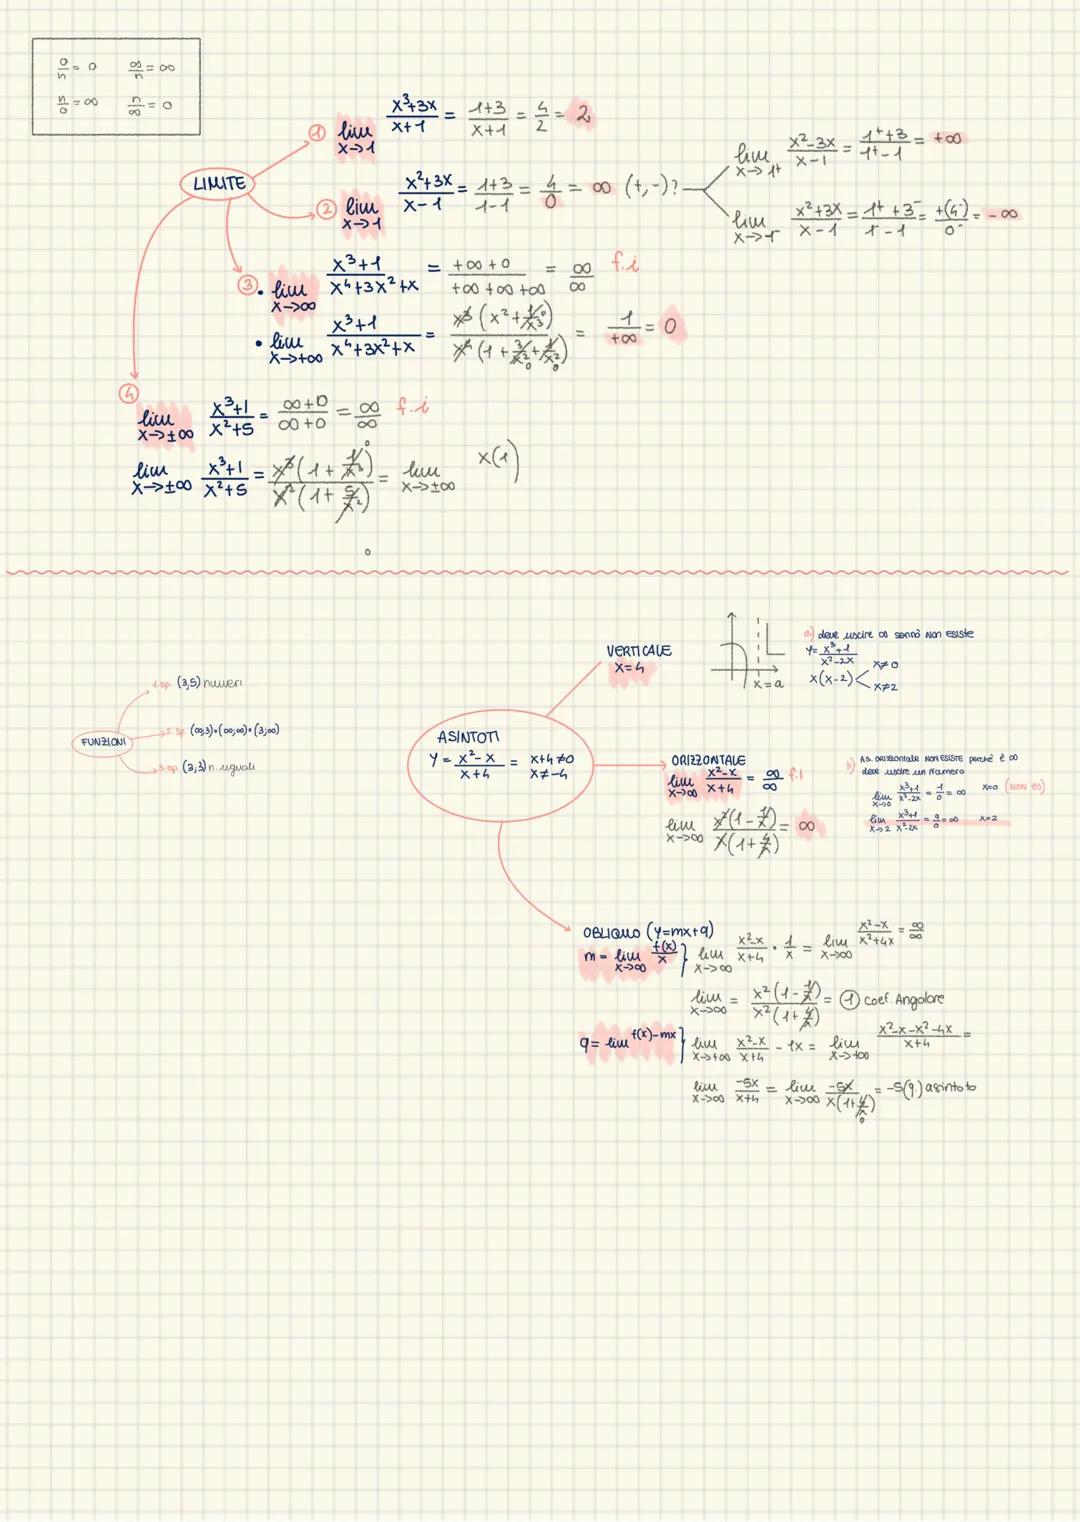 0/n = 0   ∞/n = ∞
n/0 = ∞   n/∞ = 0
LIMITE
① lim x→1 (x³+3x)/(x+1) = (1+3)/(x+1) = 4/2 = 2
② lim x→1 (x²+3x)/(x-1) = (1+3)/(1-1) = 4/0 = ∞ (+,-)?
lim x→1+ (x²-3x)/(x-1) = (1⁺+3)/(1⁺-1) = +∞
lim x→1⁻ (x²+3x)/(x-1) = (1⁺+3⁻)/(1⁻-1) = +(4⁻)/0⁻ = -∞
③ • lim x→∞ (x³+1)/(x⁴+3x²+x) = (+∞+0)/(+∞+∞+∞) = ∞/∞ f.i
• lim x→+∞ (x³+1)/(x⁴+3x²+x) = x³(x²+1/x³)/x⁴(1+3/x²+1/x³) = 1/+∞ = 0
④ lim x→±∞ (x³+1)/(x²+5) = (∞+0)/(∞+0) = ∞/∞ f.i
lim x→±∞ (x³+1)/(x²+5) = x³(1+1/x³)/x²(1+5/x²) = lim x→±∞ x(1)
0
FUNZIONI
1 sp. (3,5) numeri
2 sp. (∞;3)•(∞;∞)•(3;∞)
3 sp. (3;3) n. uguali
ASINTOTI
y = (x²-x)/(x+4) = x+4≠0
x≠-4
VERTICALE
x=4
x=a
a) deve uscire ∞ sennò non esiste
y= (x³+1)/(x²-2x)
x(x-2) x≠0
x≠2
ORIZZONTALE
lim x→∞ (x²-x)/(x+4) = ∞/∞ f.i
lim x→∞ x²(1-1/x)/x(1+4/x) = ∞
b) AS. ORIZZONTALE NON ESISTE perchè è ∞
deve uscire un numero
lim x→0 (x³+1)/(x²-2x) = 1/0 = ∞   x=0 (NON ES)
lim x→2 (x³+1)/(x²-2x) = 9/0 = ∞   x=2
OBLIQUO (y=mx+q)
m = lim x→∞ f(x)/x } lim x→∞ (x²-x)/(x+4) · 1/x = lim x→∞ (x²-x)/(x²+4x) = ∞/∞
lim x→∞ = x²(1-1/x)/x²(1+4/x) = ① coef. Angolare
q = lim f(x)-mx } lim x→+∞ (x²-x)/(x+4) - 1x = lim x→+∞ (x²-x-x²-4x)/(x+4) =
lim x→∞ -5x/(x+4) = lim x→∞ -5x/x(1+4/x) = -5(q.) asintoto